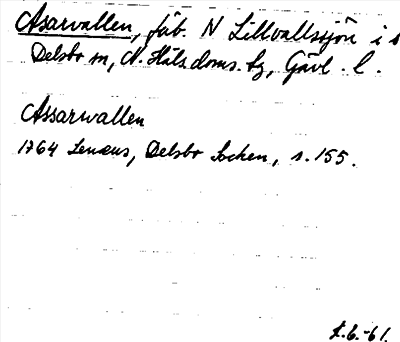 Åsarvallen, fäb. N Lillvallssjön i s
Delsbo sn, N. Häls. doms. tg, Gävl. l.
Assarwallen
1764 Lenæus, Delsbo Socken, s. 155.